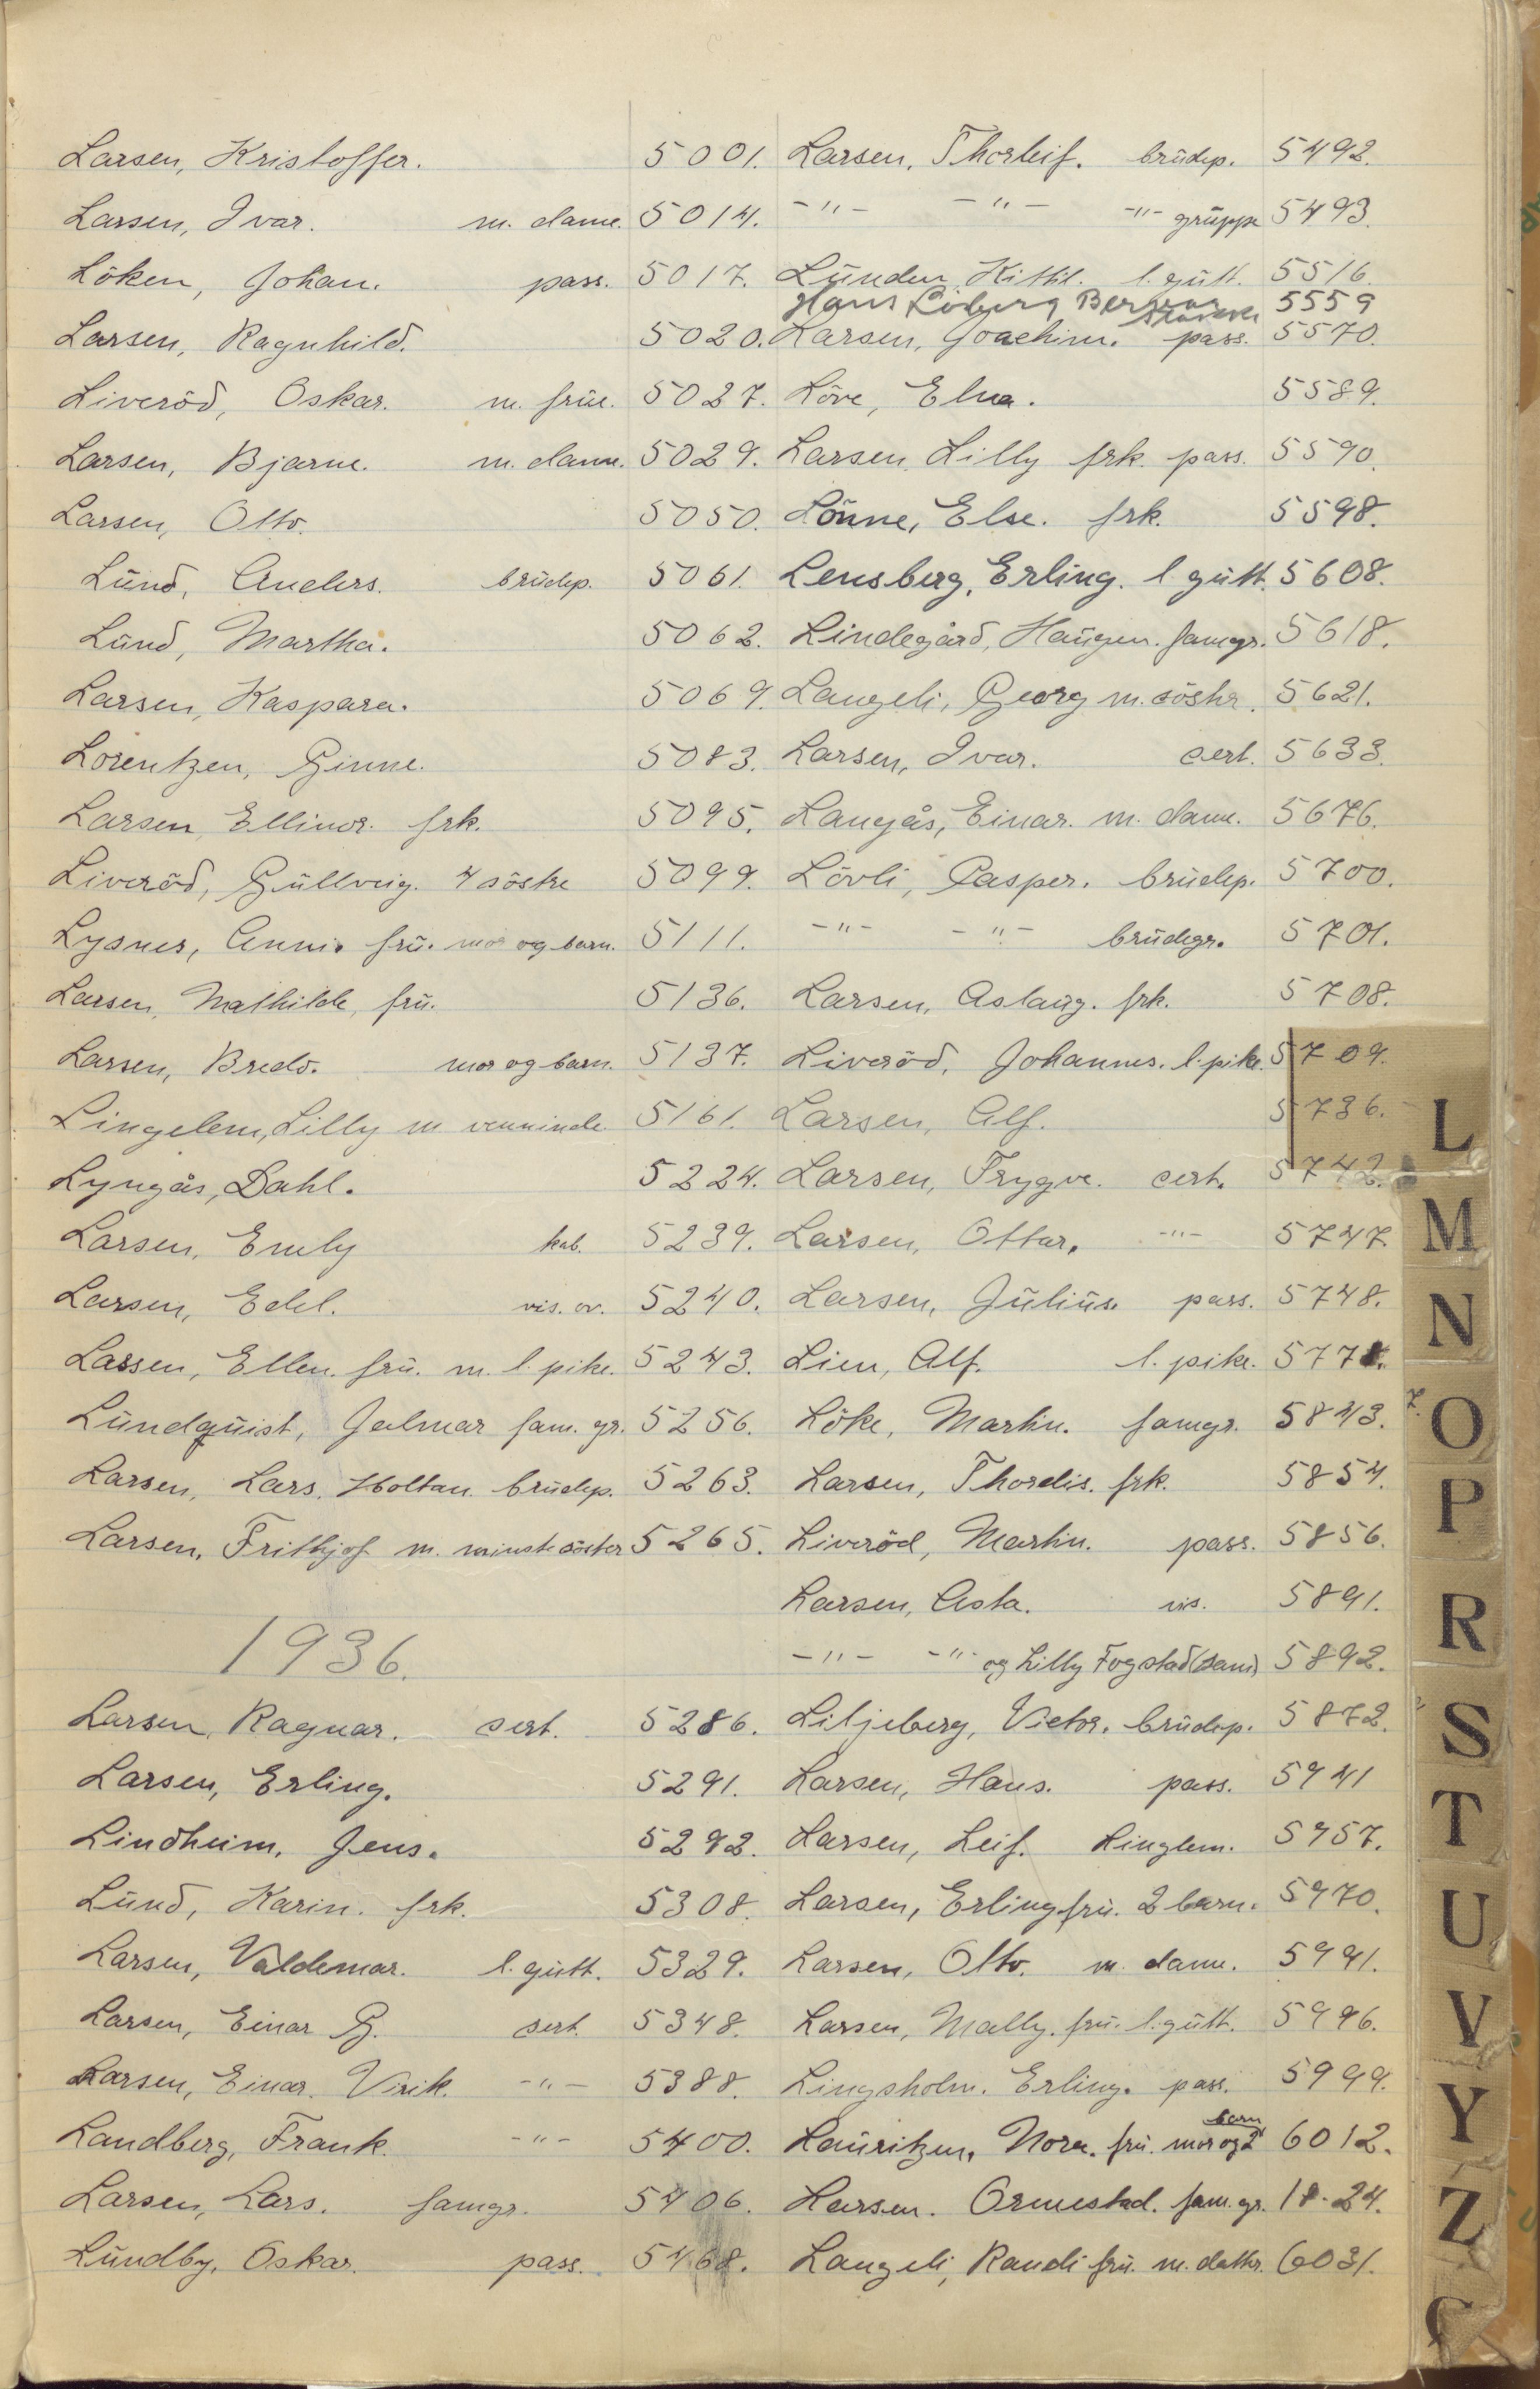 Larsen, Kristoffer. 5001.
Larsen, Ivar. m. dame. 5014.
Löken, Johan. pass. 5017.
Larsen, Ragnhild. 5020.
Liveröd, Oskar. m. früe. 5027.
Larsen, Bjarne. m. dame. 5029.
Larsen, Otto. 5050.
Lünd, Anders. brüdep. 5061.
Lünd, Martha. 5062.
Larsen, Kaspara. 5069.
Lorentzen, Ginne. 5083.
Larsen, Ellinor. frk. 5095.
Liveröd, Güllveig. 4 söstre 5099.
Lysnes, Anni. frü. mor og barn. 5111.
Larsen, Mathilde, frü. 5136.
Larsen, Bredo. mor og barn. 5137.
Lingelem, Lilly m veninde. 5161.
Lyngås, Dahl. 5224.
Larsen, Emely kab. 5239.
Larsen, Edel. vis. ov. 5240.
Larsen, Ellen. frü. m. l. pike. 5243.
Lündqüist, Jalmar fam. gr. 5256.
Larsen, Lars. Holtan. brüdep. 5263.
Larsen, Frithjof m. minste söster 5265.
1936.
Larsen, Ragnar. sert. 5286.
Larsen, Erling. 5291.
Lindheim, Jens. 5292.
Lünd, Karin. frk. 5308.
Larsen, Valdemar. l. gütt. 5329.
Larsen, Einar G. sert. 5348.
Larsen, Einar. Virik. -"- 5388.
Landberg, Frank. -"- 5400.
Larsen, Lars. famgr. 5406.
Lündby, Oskar. pass. 5468.
Larsen, Thorleif. brüdep. 5492.
-"- -"- -"- grüppe 5493.
Lünden, Kittil. l. gütt. 5516.
Hans Löberg 5559
Larsen, Joachim. pass. 5570.
Löve, Elna. 5589.
Larsen, Lilly frk. pass. 5590.
Lönne, Else. frk. 5598.
Lensberg, Erling. l. gütt. 5608.
Lindegård, Haügen. famgr. 5618.
Langeli, Georg m. söstr. 5621.
Larsen, Ivar. cert. 5633.
Langås, Einar. m. dame. 5676.
Lövli, Casper. brüdep. 5700.
-"- -"- brüdegr. 5701.
Larsen, Aslaüg. frk. 5708.
Liveröd, Johannes. l. pike. 5709.
Larsen, Alf. 5736.
Larsen, Trygve. cert. 5742.
Larsen, Ottar. -"- 5747.
Larsen, Jüliüs. pass. 5748.
Lien, Alf. l. pike. 5778.
Löke, Martin. famgr. 5843.
Larsen, Thordis. frk. 5854.
Liveröd, Martin. pass. 5856.
Larsen, Asta. vis. 5891.
-"- -"- og Lilly Fogstad (sam) 5892.
Liljeberg, Victor. brüdep. 5872.
Larsen, Hans. pass. 5941
Larsen, Leif. Linglem. 5957.
Larsen, Erling frü. 2 barn. 5970.
Larsen, Otto. m. dame. 5991.
Larsen, Mally. frü. l. gütt. 5996.
Lingsholm. Erling. pass. 5999.
Laüritzen, Nora. frü. mor og 2 barn 6012.
Larsen. Ormestad. fam. gr. 18-24.
Langeli, Randi frü. m. dattr. 6031.
L
M
N
O
P
R
S
T
U
V
Y
Z